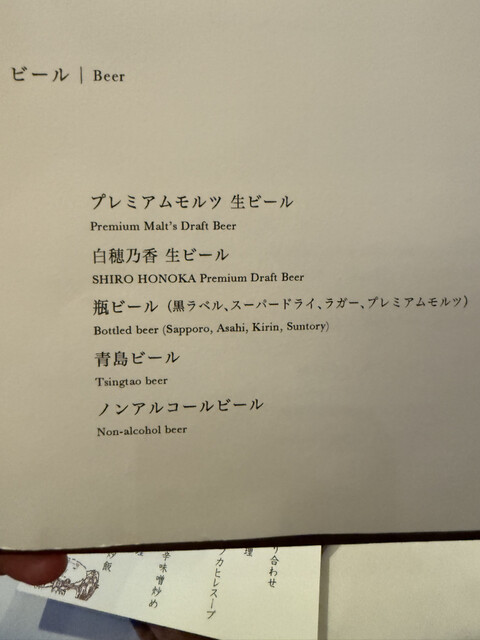 ビール | Beer
プレミアムモルツ 生ビール
Premium Malt's Draft Beer
白穂乃香 生ビール
SHIRO HONOKA Premium Draft Beer
瓶ビール（黒ラベル、スーパードライ、ラガー、プレミアムモルツ）
Bottled beer (Sapporo, Asahi, Kirin, Suntory)
青島ビール
Tsingtao beer
ノンアルコールビール
Non-alcohol beer
り合わせ
理
フカヒレスープ
辛味噌炒め
炒飯